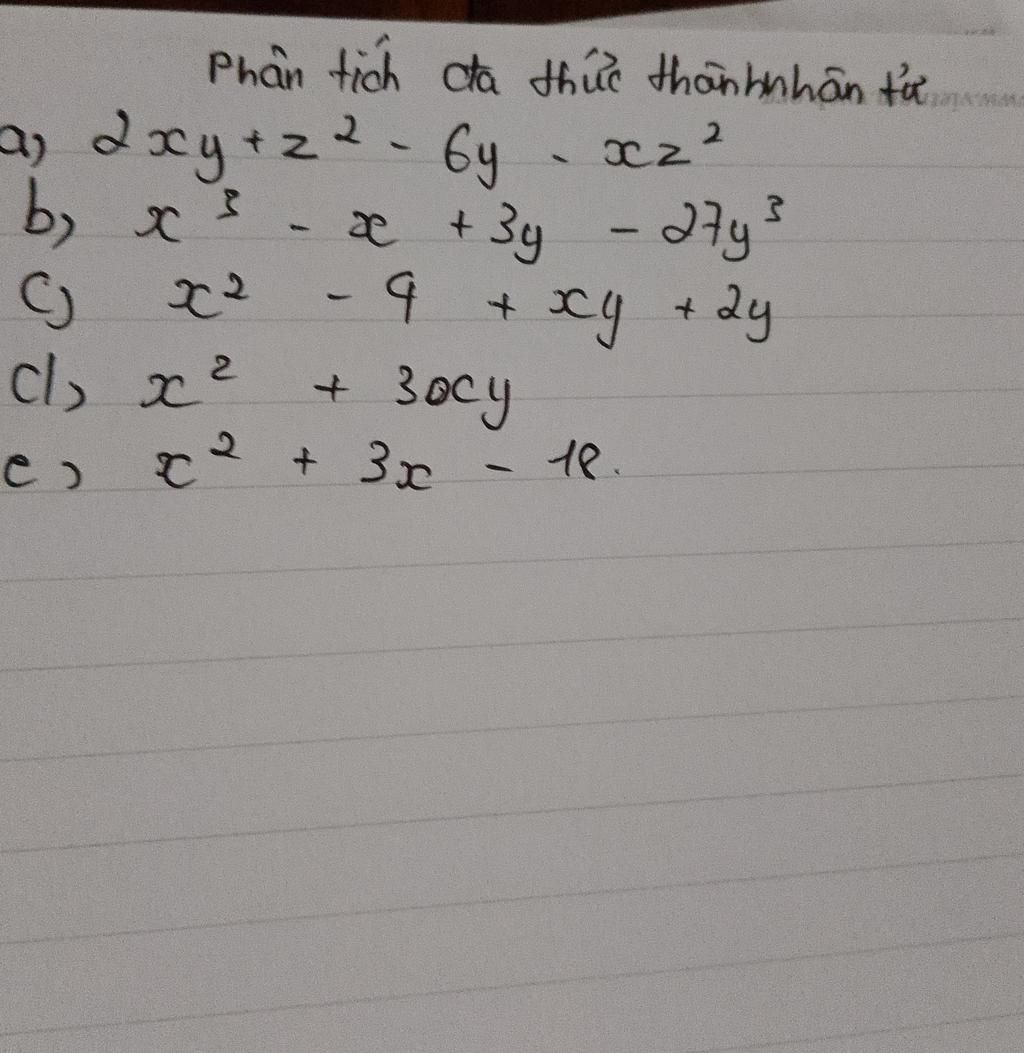 Phân tích đa thức thành nhân tử
a) 2xy + z² - 6y - xz²
b) x³ - x + 3y - 27y³
c) x² - 9 + xy + 2y
d) x² + 3xy
e) x² + 3x - 18.